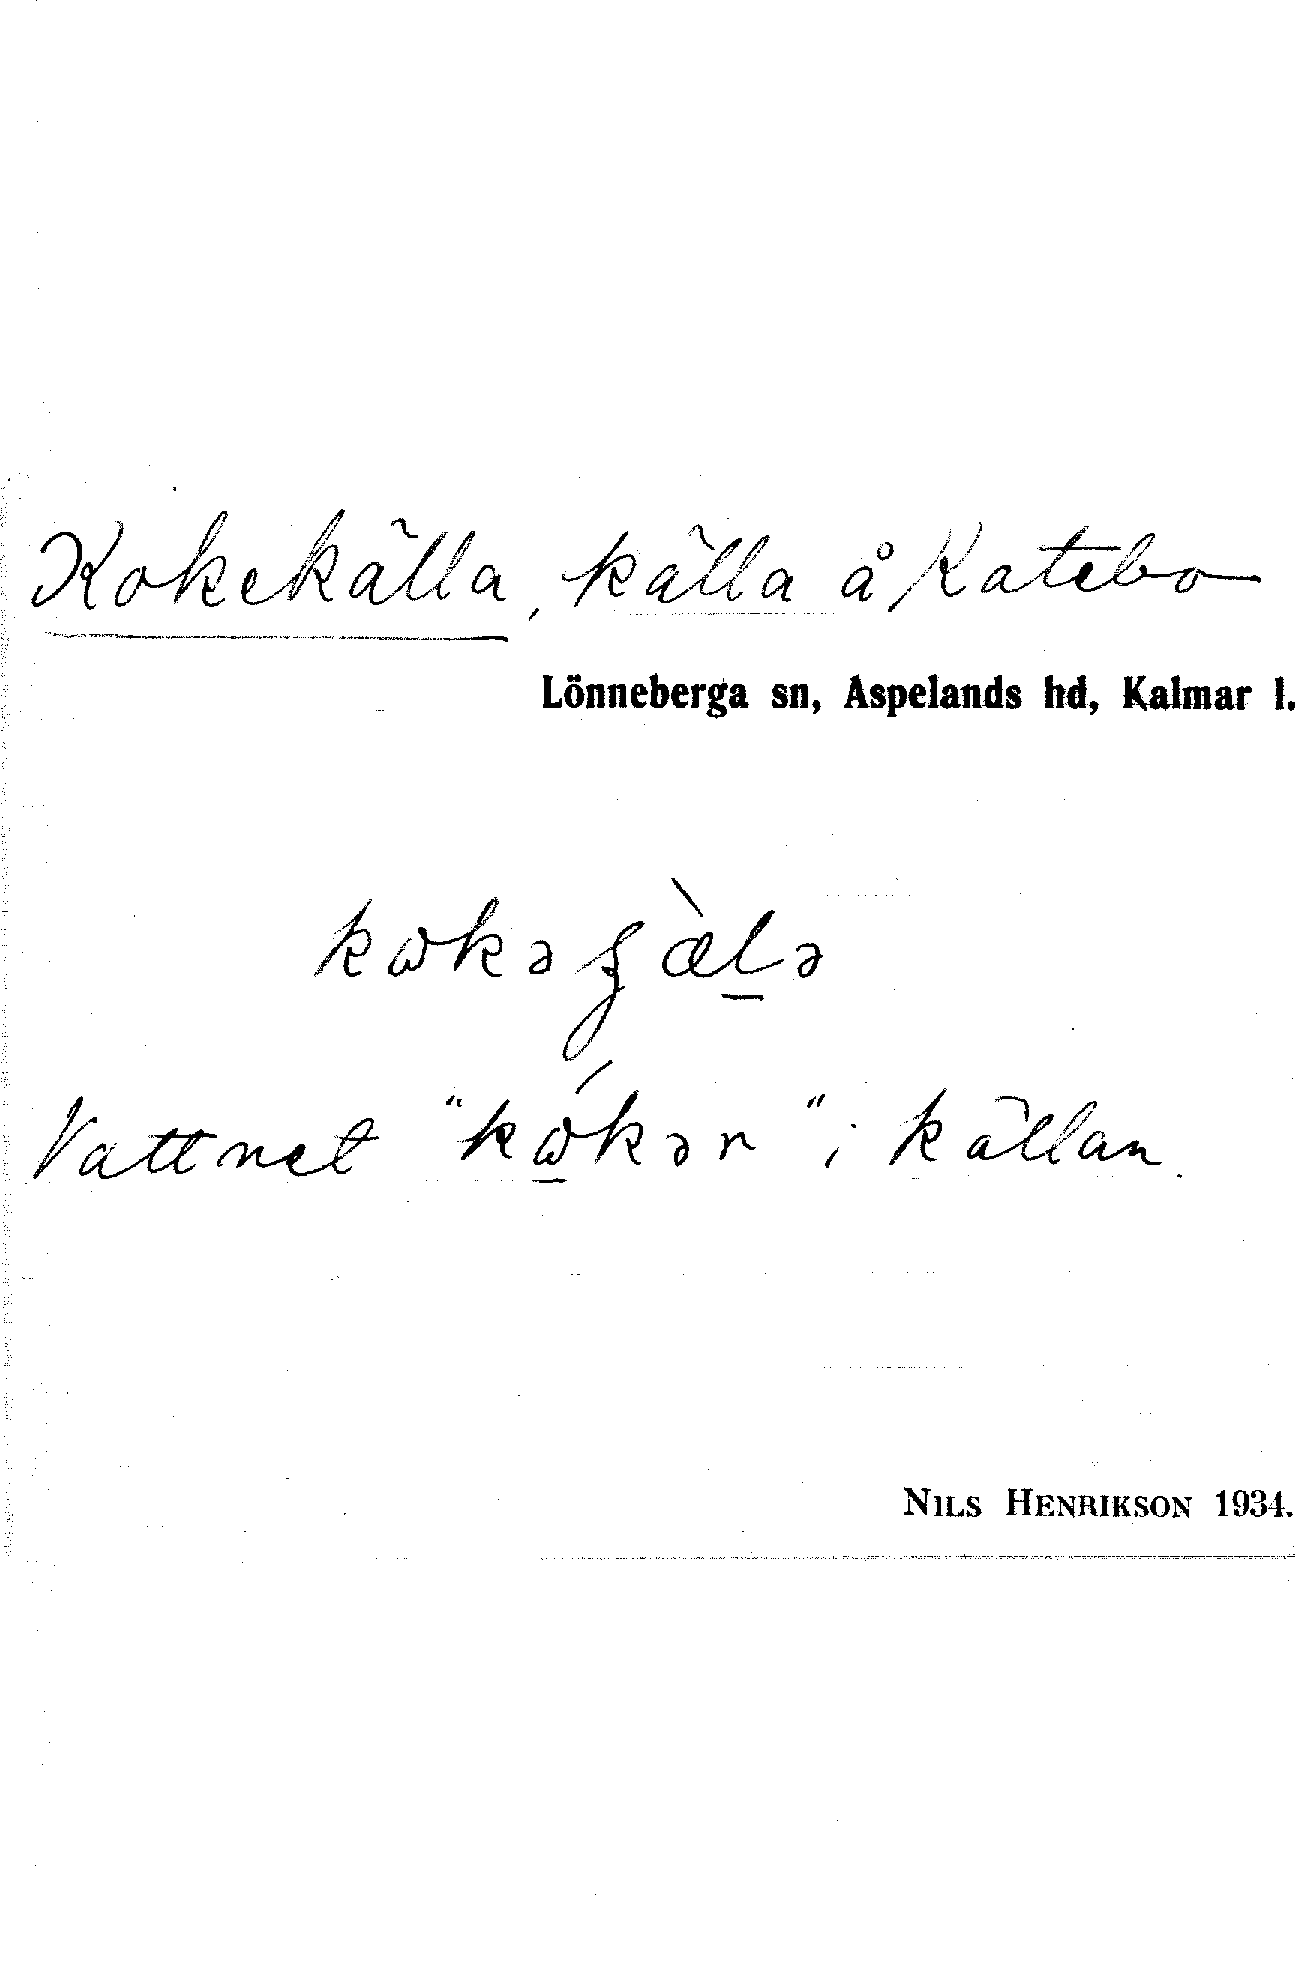 Kokekälla, källa å Katebo
Lönneberga sn, Aspelands hd, Kalmar l.
kωkəʂæ̀l̲ə
Vattnet "kώ̲kər" i källan.
NILS HENRIKSON 1934.